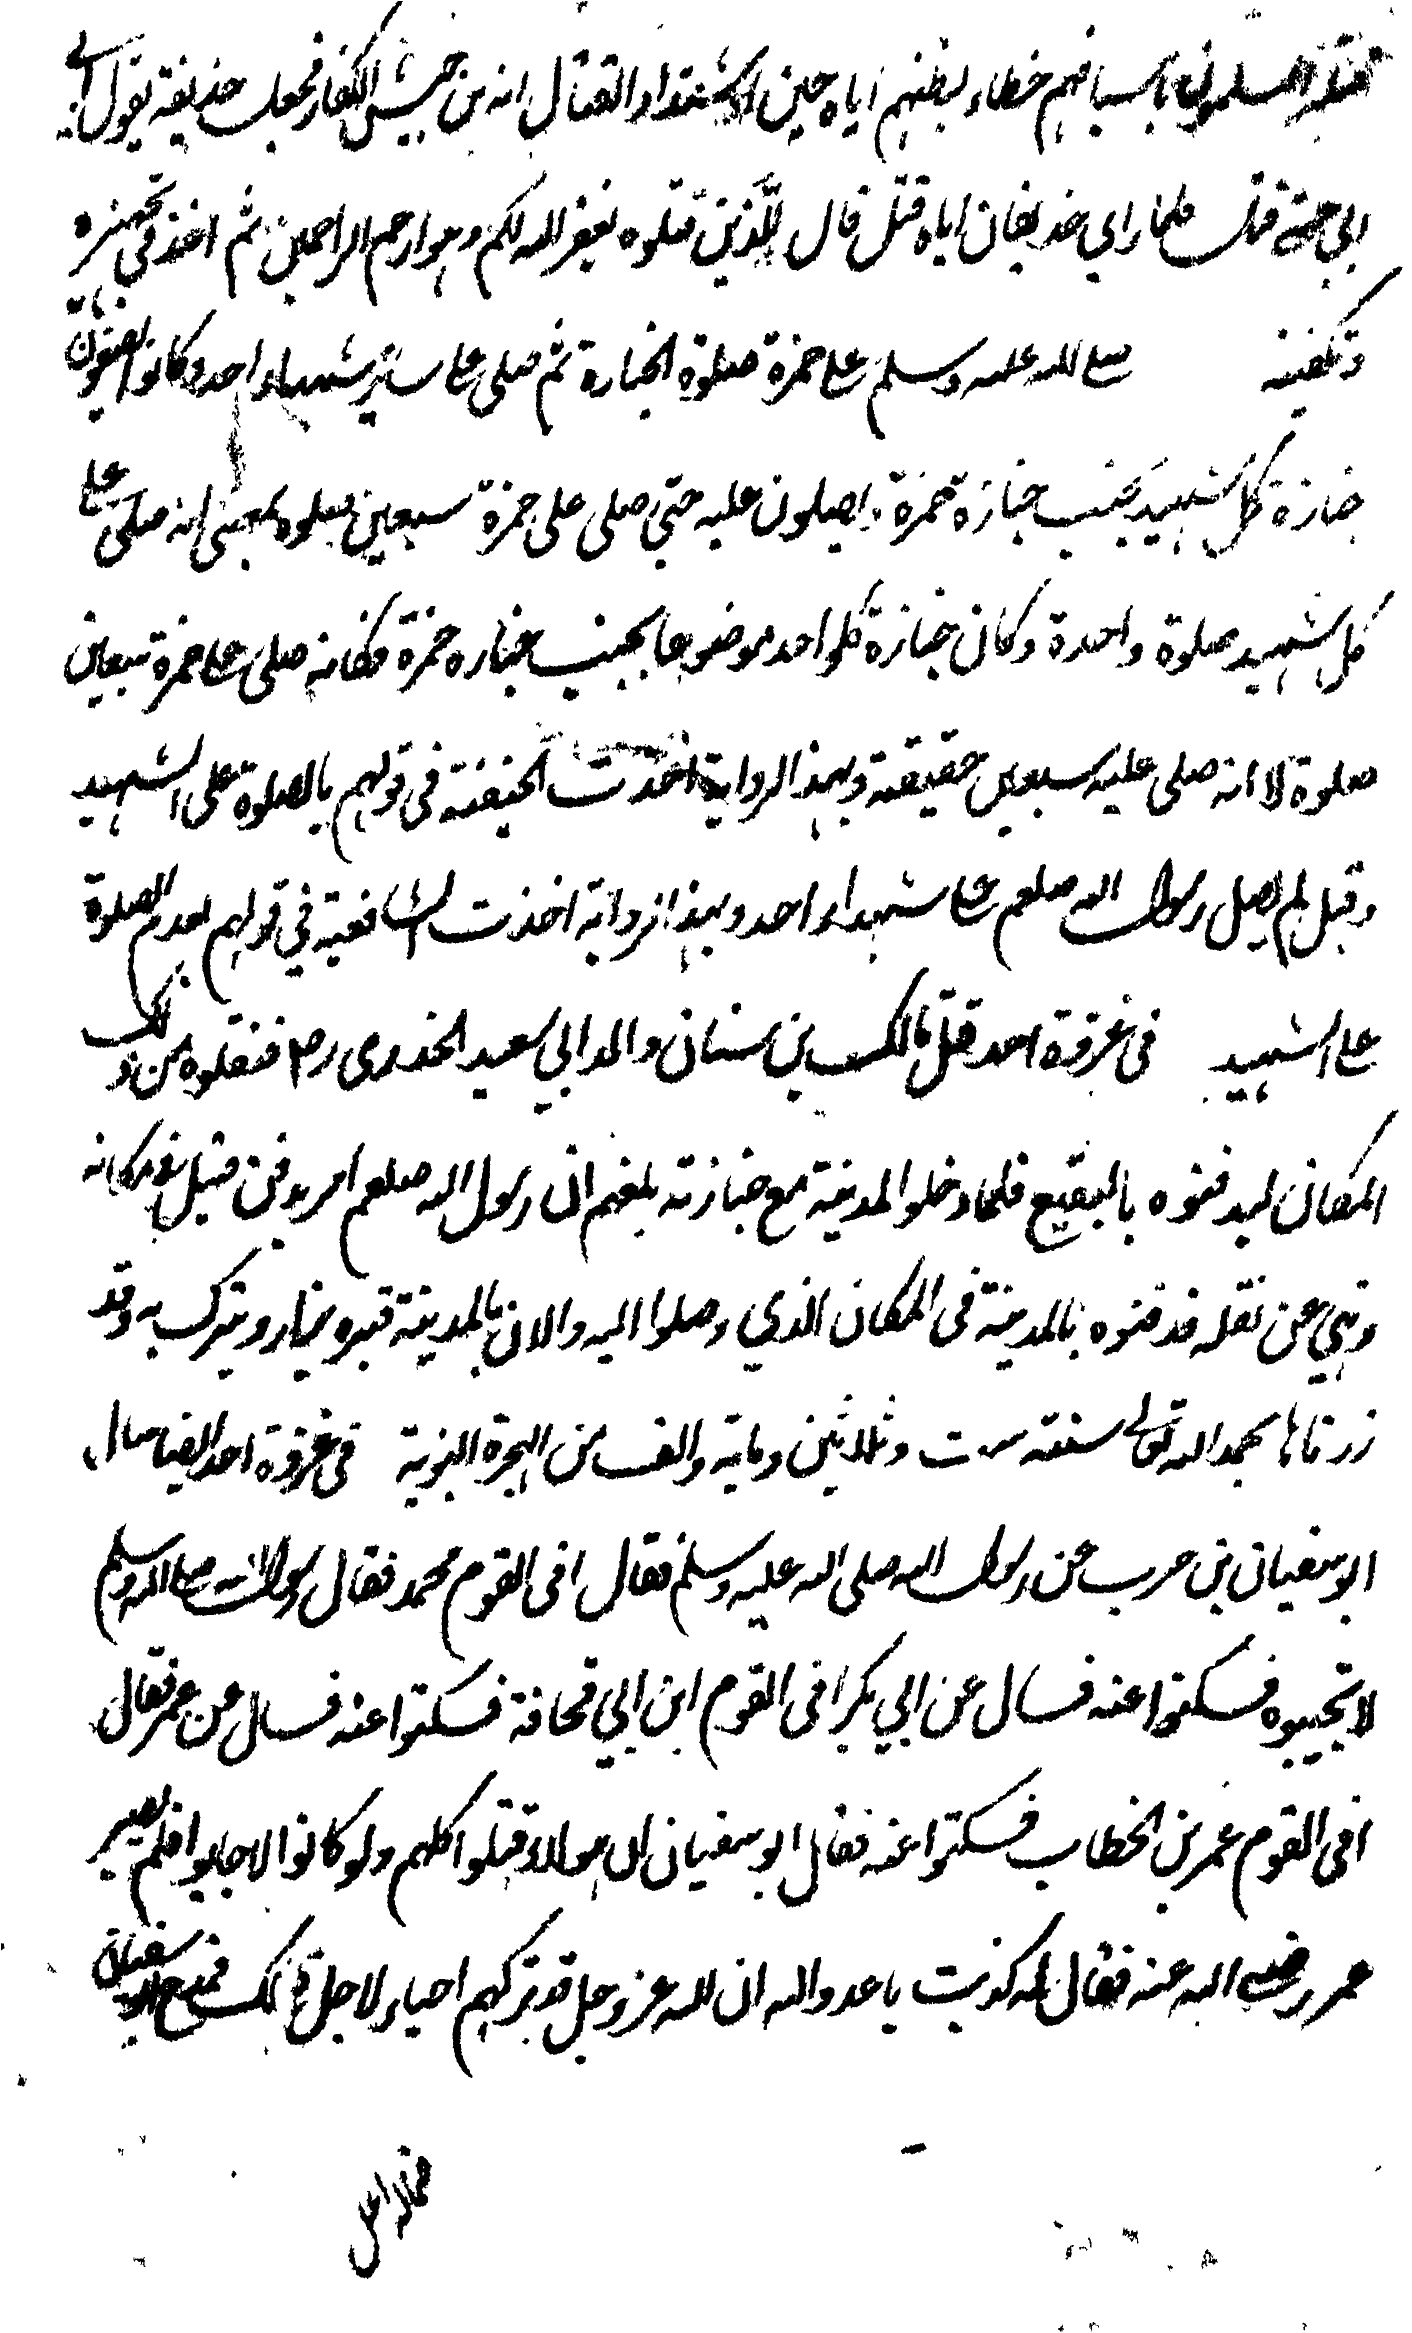 فقتله المسلمون باسيافهم خطاء بظنهم اياه حين اشتداد القتال انه من جيش الكفار فجعل حذيفة يقول ابي
ابي حتى قتل فلما راي حذيفة ان اباه قتل قال للذين قتلوه يغفر الله لكم وهو ارحم الراحمين ثم اخذ في تجهيزه
وتكفينه صلى الله عليه وسلم على حمزة صلوة الجنازة ثم صلى على سائر شهداء احد وكانوا يضعون
جنازة كل شهيد بجنب جنازة حمزة ويصلون عليه حتى صلى على حمزة سبعين صلوة بمعنى انه صلى على
كل شهيد صلوة واحدة وكان جنازة كل واحد موضوعا بجنب جنازة حمزة فكانه صلى على حمزة سبعين
صلوة لا انه صلى عليه سبعين حقيقة وبهذ الرواية اخذت الحنيفة في قولهم بالصلوة على الشهيد
وقيل لم يصل رسول الله صلعم على شهداء احد وبهذ الرواية اخذت الشافعية في قولهم بعدم الصلوة
على الشهيد في غزوة احد قتل مالك بن سنان والد ابي سعيد الخدري رض فنقلوه من ذلك
المكان ليدفنوه بالبقيع فلما دخلوا المدينة مع جنازته بلغهم ان رسول الله صلعم امر بدفن قتيل في مكانه
ونهي عن نقله فدفنوه بالمدينة في المكان الذي وصلوا اليه والان بالمدينة قبره يزار ويتبرك به وقد
زرناها بحمد الله تعالى سنة ست وثلاثين وماية والف من الهجرة النبوية في غزوة احد ايضا سال
ابو سفيان بن حرب عن رسول الله صلى الله عليه وسلم فقال افي القوم محمد فقال رسول الله صلى الله وسلم
لا تجيبوه فسكتوا عنه فسال عن ابي بكر افي القوم ابن ابي قحافة فسكتوا عنه فسال عن عمر فقال
افي القوم عمر بن الخطاب فسكتوا عنه فقال ابو سفيان ان هولاء قتلوا كلهم ولو كانوا لاجابوا فلم يصبر
عمر رضى الله عنه فقال له كذبت ياعدو الله ان الله عز وجل قد تركهم احياء لاجل قتالك فمدح ابو سفيان